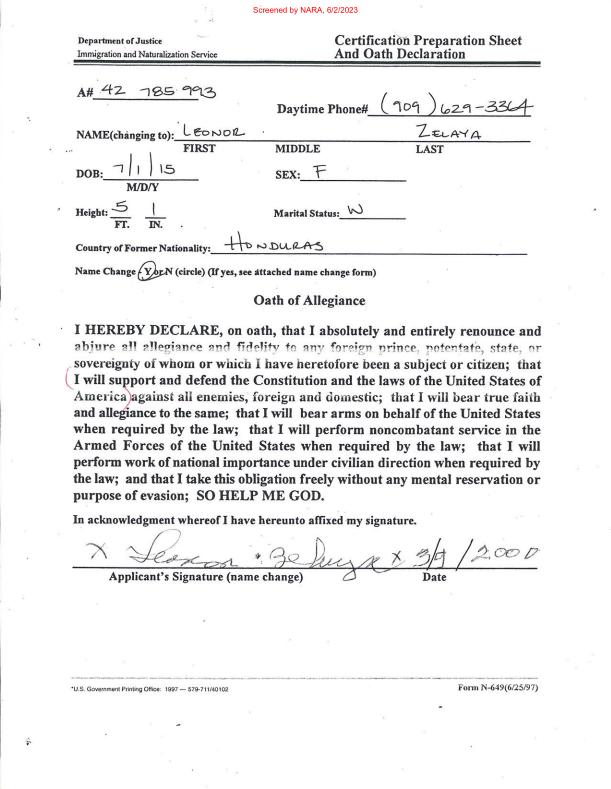 Screened by NARA, 6/2/2023
Department of Justice
Immigration and Naturalization Service
Certification Preparation Sheet
And Oath Declaration
A# 42 785 993
Daytime Phone# (909) 629-3364
NAME(changing to): LEONOR ZELAYA
FIRST MIDDLE LAST
DOB: 7/1/15 SEX: F
M/D/Y
Height: 5 1 Marital Status: W
FT. IN.
Country of Former Nationality: HONDURAS
Name Change Y or N (circle) (If yes, see attached name change form)
Oath of Allegiance
I HEREBY DECLARE, on oath, that I absolutely and entirely renounce and
abjure all allegiance and fidelity to any foreign prince, potentate, state, or
sovereignty of whom or which I have heretofore been a subject or citizen; that
I will support and defend the Constitution and the laws of the United States of
America against all enemies, foreign and domestic; that I will bear true faith
and allegiance to the same; that I will bear arms on behalf of the United States
when required by the law; that I will perform noncombatant service in the
Armed Forces of the United States when required by the law; that I will
perform work of national importance under civilian direction when required by
the law; and that I take this obligation freely without any mental reservation or
purpose of evasion; SO HELP ME GOD.
In acknowledgment whereof I have hereunto affixed my signature.
X Leonor X 3/9/2000
Applicant's Signature (name change) Date
*U.S. Government Printing Office: 1997 — 579-711/40102
Form N-649(6/25/97)